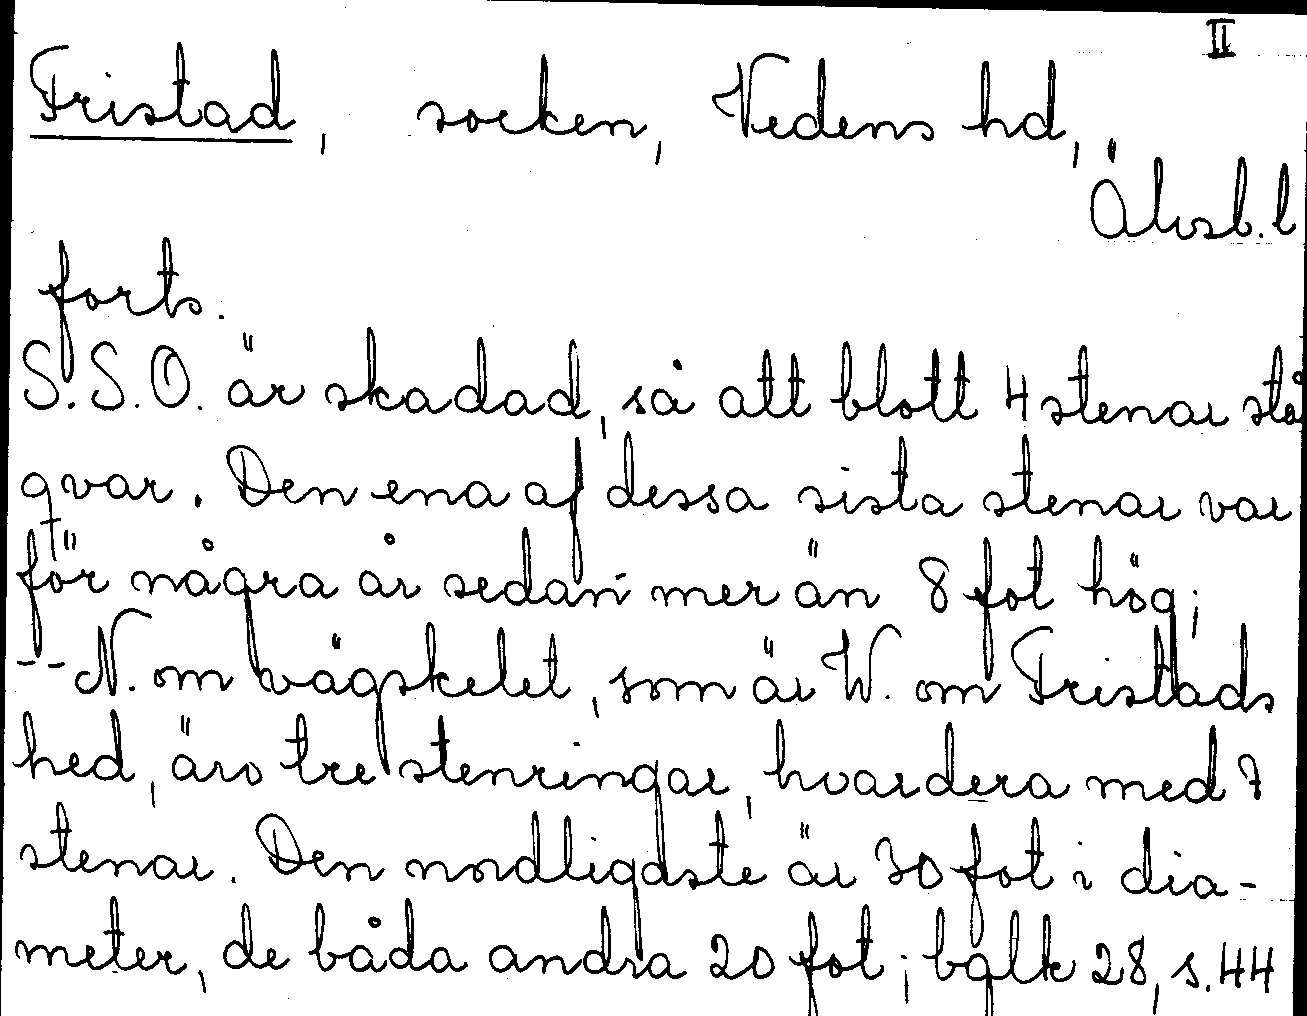 II
Fristad, socken, Vedens hd,
Älvsb. l
forts.
S.S.O. är skadad, så att blott 4 stenar stå
qvar. Den ena af dessa sista stenar var
för några år sedan mer än 8 fot hög;
-- N. om vägskelet, som är W. om Fristads
hed, äro tre stenringar, hvardera med 7
stenar. Den nordligdste är 30 fot i dia-
meter, de båda andra 20 fot; bglk 28, s.44